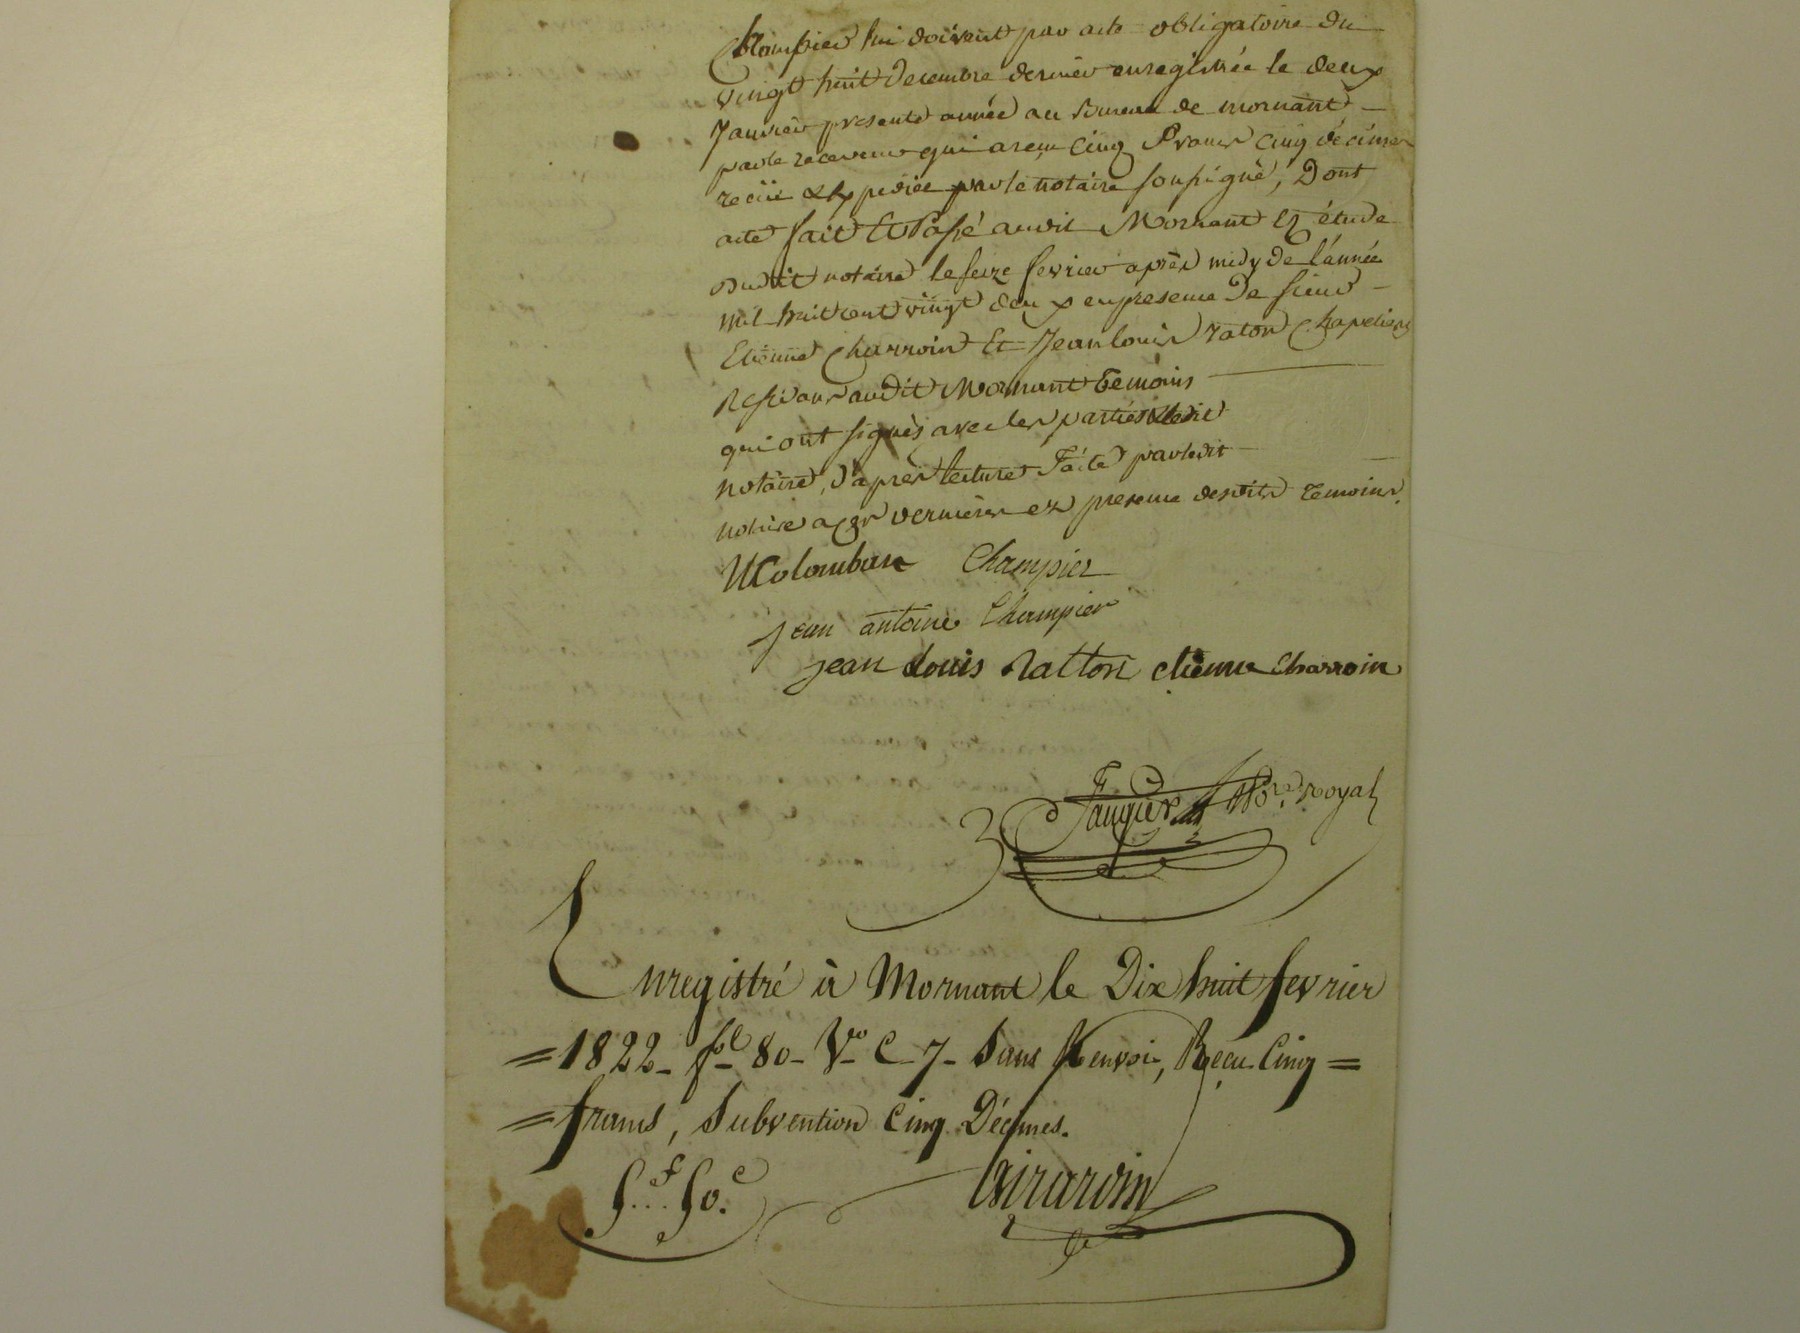 Champier lui doivent par acte obligatoire du
vingt huit decembre dernier enregistrée le deux
Janvier presente année au Bureau de mornant
par le receveur qui a reçu Cinq francs Cinq décimes
recüe & Expediée par le notaire soussigné, Dont
acte fait Et Passé audit Mornant Ez étude
dudit notaire le seize fevrier après midy de l'année
mil huit cent vingt deux en presence de sieurs
Etienne Charroin Et Jean louis raton Chapeliers
Residans audit Mornant temoins
qui ont signés avec les parties & ledit
notaire, d'après lecture Faite par ledit
notaire a ces dernieres en presence desdits temoins.
Colomban Champier
jean antoine Champier
jean Louis Ratton etienne Charroin
Faugier Nore. royal
Enregistré à Mornant le Dix huit fevrier
= 1822 - fol 80 - Vo C 7 - Sans Renvoi, Reçu Cinq =
= francs, Subvention Cinq Décimes.
Girardin